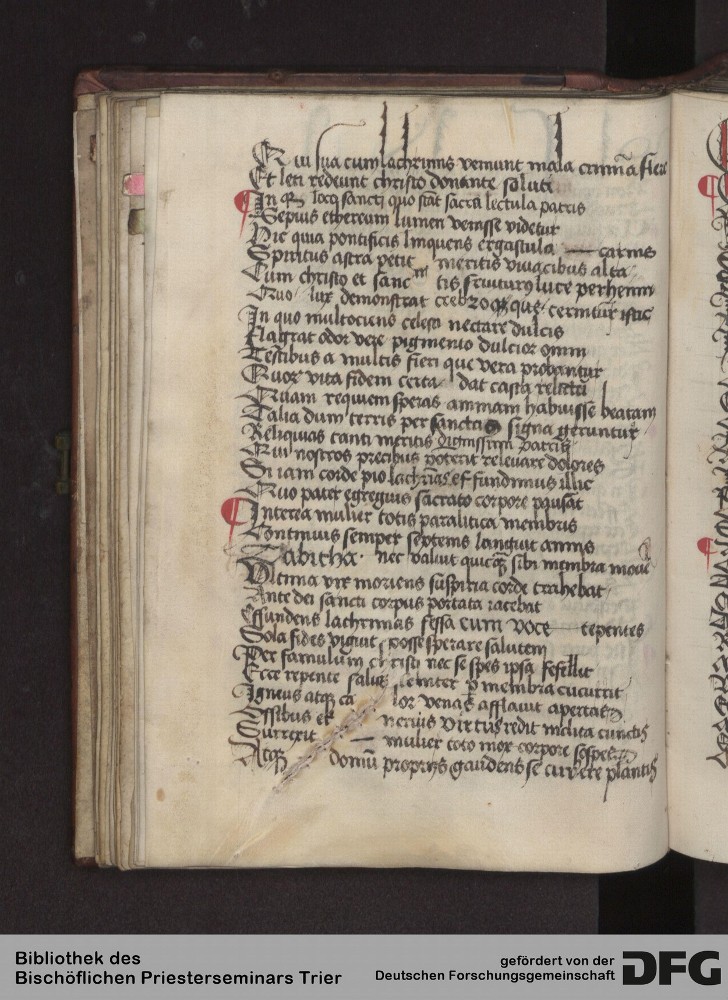 Qui sua cum lachrimis veniunt mala crimina fleri
Et leti redeunt christo donante saluti
In quo locoque sancti quo stat sacra lectula patris
Sepius ethereum lumen venisse videtur
Hic quia pontificis linquens ergastula carnis
Spiritus astra petit meritis vivacibus alta
Cum christo et sanctis fruiturus luce perhenni
Quo lux demonstrat crebro que cernitur istic
In quo multociens celesti nectare dulcis
Flagrat odor vere pigmento dulcior omni
Testibus a multis fieri que vera probantur
Quos vita fidem certa dat casta relatu
Quam requiem speras animam habuisse beatam
Talia dum terris per sancta signa geruntur
Reliquias tanti meritis dignissimi patris
Qui nostros precibus poterit relevare dolores
Si iam corde pio lachrimas effundimus illic
Quo pater egregius sacrato corpore pausat
Interea mulier totis paralitica membris
Continuis semper septenis languit annis
Tabitha nec valuit quicquam sibi membra movere
Ultima vix moriens suspiria corde trahebat
Ante dei sancti corpus portata iacebat
Effundens lachrimas fessa cum voce tepentes
Sola fides viguit posse sperare salutem
Per famulum christi nec se spes ipsa fefellit
Ecce repente salus leniter per membra cucurrit
Igneus atque calor venas afflavit apertas
Ossibus et nervis virtus redit inclita cunctis
Surrexit mulier toto mox corpore sospes
Atque domum proprijs gaudens se currere plantis
Bibliothek des
Bischöflichen Priesterseminars Trier
gefördert von der
Deutschen Forschungsgemeinschaft
DFG